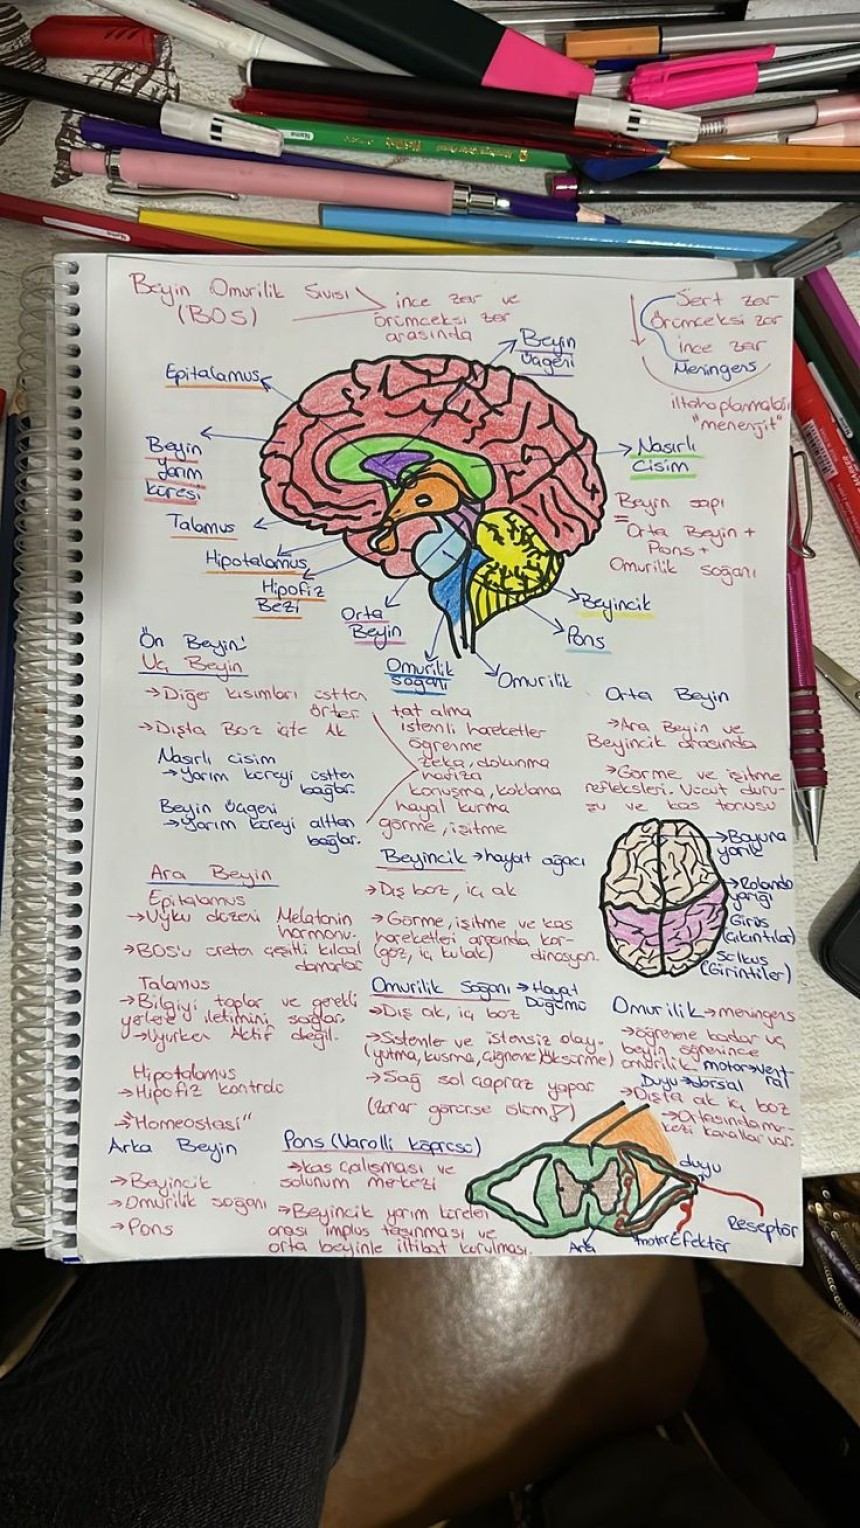 Beyin Omurilik Sıvısı
(BOS)
ince zar ve
örümceksi zar
arasında
Sert zar
Örümceksi zar
ince zar
Meninges
iltihaplanmaları
"menenjit"
Beyin
üçgeni
Epitalamus
Beyin
yarım
küresi
Nasırlı
cisim
Talamus
Hipotalamus
Hipofiz
Bezi
Beyin sapı
=
Orta Beyin +
Pons +
Omurilik soğanı
Orta
Beyin
Beyincik
Pons
Omurilik
soğanı
Omurilik
Ön Beyin
Uç Beyin
→Diğer kısımları üstten
örter
→Dışta Boz içte Ak
Nasırlı cisim
→Yarım küreyi üstten
bağlar.
Beyin üçgeni
→Yarım küreyi alttan
bağlar.
tat alma
istemli hareketler
öğrenme
zeka, dokunma
hafıza
konuşma, koklama
hayal kurma
görme, işitme
Orta Beyin
→Ara Beyin ve
Beyincik arasında
→Görme ve işitme
refleksleri. Vücut duru-
şu ve kas tonusu
Ara Beyin
Epitalamus
→Uyku düzeni Melatonin
hormonu.
→BOS'u üreten çeşitli kılcal
damarlar
Talamus
→Bilgiyi toplar ve gerekli
yerlere iletimini sağlar.
→Uyurken Aktif değil.
Hipotalamus
→Hipofiz kontrolü
→"Homeostasi"
Beyincik →hayat ağacı
→Dış boz, iç ak
→Görme, işitme ve kas
hareketleri arasında kor-
(göz, iç kulak) dinasyon.
Omurilik Soğanı →Hayat
Düğümü
→Dış ak, iç boz
→Sistemler ve istemsiz olay.
(yutma, kusma, çiğneme, öksürme)
→Sağ sol çapraz yapar
(zarar görürse ölüm!)
Boyuna
yarık
→Rolando
yarığı
Girus
(Çıkıntılar)
Sulkus
(Girintiler)
Omurilik→meninges
→öğrenene kadar uç
beyin öğrenince
omurilik motor→vent-
ral
Duyu→dorsal
→Dışta ak iç boz
→Ortasında mer-
kezi kanallar var.
Arka Beyin
→Beyincik
→Omurilik soğanı
→Pons
Pons (Varolli köprüsü)
→kas çalışması ve
solunum merkezi
→Beyincik yarım küreleri
arası implus taşınması ve
orta beyinle iltibat kurulması.
duyu
Reseptör
Ara
motor Efektör